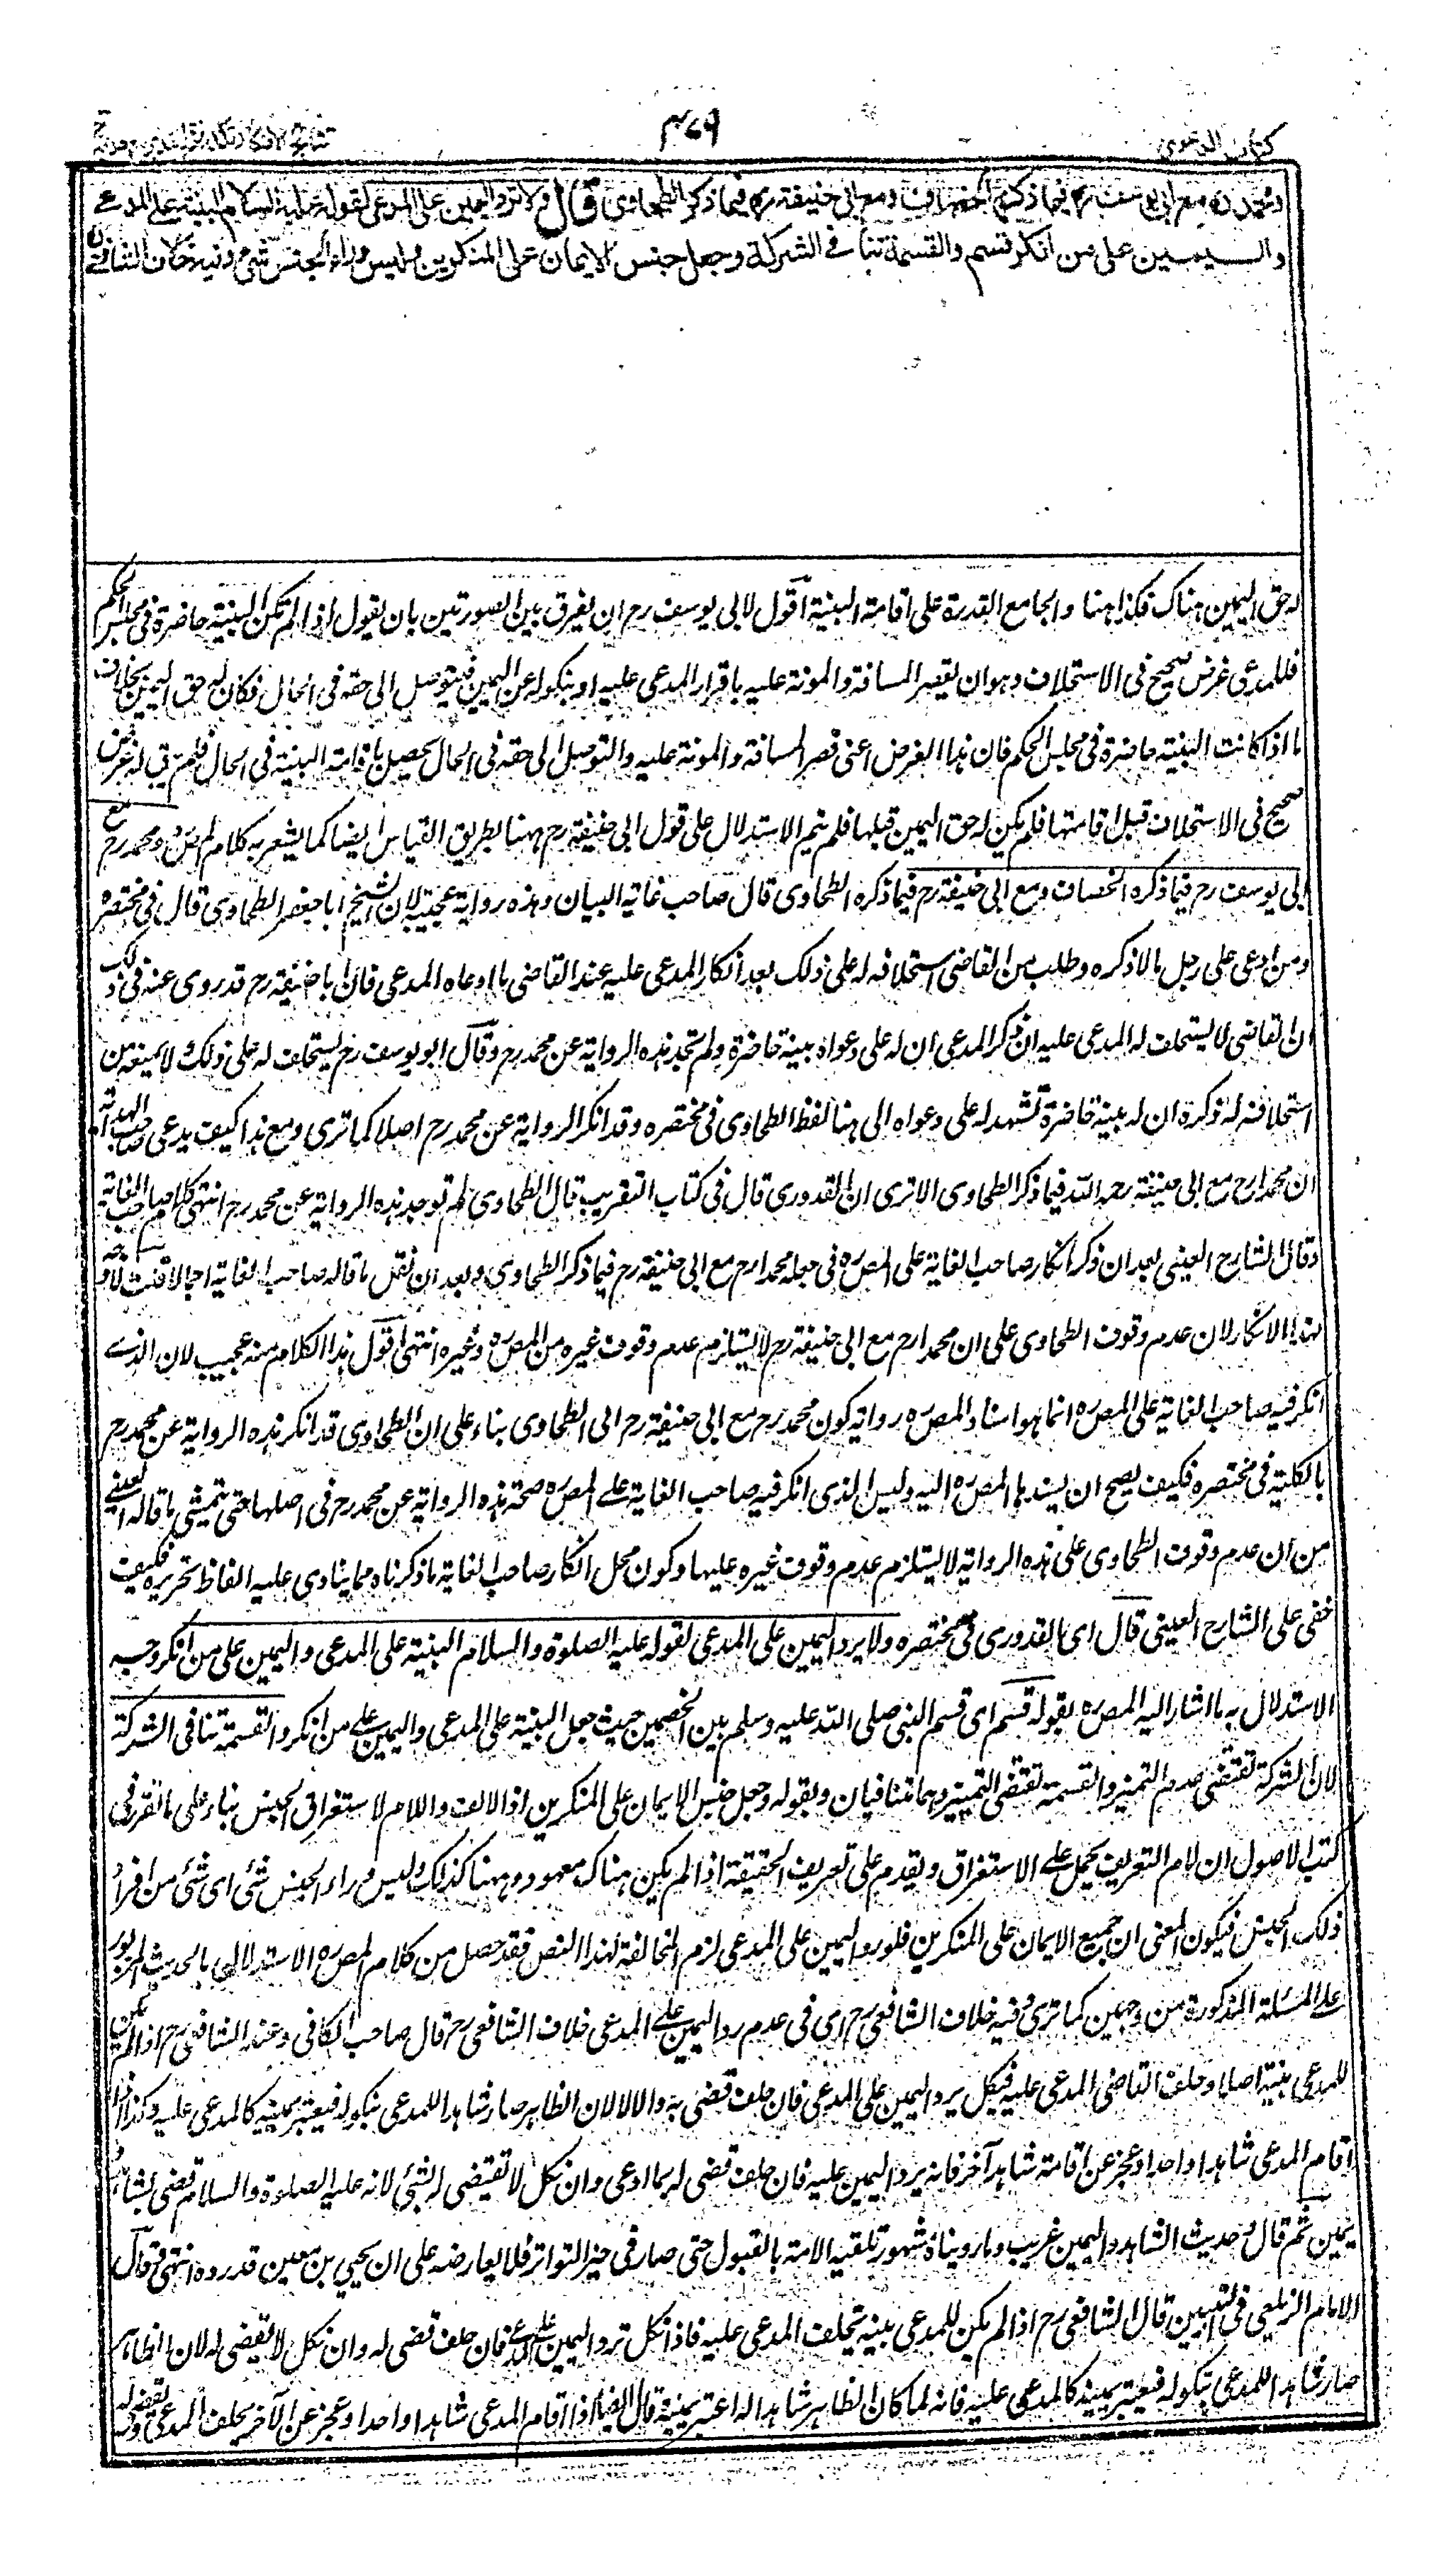 كتاب الدعوى
٣٧٩
نتائج الافكار تكملة فتح القدير
ومحمد رح مع ابي يوسف رح فيما ذكره الخصاف ومع ابي حنيفة رح فيما ذكر الطحاوى قال ولا ترد اليمين على المدعى لقوله عليه السلام البينة على المدعى
واليمين على من انكر قسم والقسمة تنافى الشركة وجعل جنس الايمان على المنكرين وليس وراء الجنس شئ وفيه خلاف الشافعى
له حق اليمين هناك فكذا هنا والجامع القدرة على اقامة البينة اقول لابى يوسف رح ان يفرق بين الصورتين بان يقول اذا لم تكن البينة حاضرة فى مجلس الحكم
فللمدعى غرض صحيح فى الاستحلاف وهو ان يقصر المسافة والمونة عليه باقرار المدعى عليه او بنكوله عن اليمين فيتوصل الى حقه فى الحال فكان له حق اليمين بخلاف
ما اذا كانت البينة حاضرة فى مجلس الحكم فان هذا الغرض اعنى قصر المسافة والمونة عليه والتوصل الى حقه فى الحال يحصل باقامة البينة فى الحال فلم يبق له غرض
صحيح فى الاستحلاف قبل اقامتها فلم يكن له حق اليمين قبلها فلم يتم الاستدلال على قول ابى حنيفة رح ههنا بطريق القياس ايضا كما يشعر به كلام المصره ومحمد رح مع
ابى يوسف رح فيما ذكره الخصاف ومع ابى حنيفة رح فيما ذكره الطحاوى قال صاحب غاية البيان وهذه رواية عجيبة لان الشيخ ابا جعفر الطحاوى قال فى مختصره
ومن ادعى على رجل مالا ذكره وطلب من القاضى استحلافه له على ذلك بعد انكار المدعى عليه عند القاضى ما ادعاه المدعى فان ابا حنيفة رح قد روى عنه فى ذلك
ان القاضى لا يستحلف له المدعى عليه ان ذكر المدعى ان له على دعواه بينة حاضرة ولم تجد هذه الرواية عن محمد رح وقال ابو يوسف رح يستحلف له على ذلك لا يمنعه من
استحلافه له ذكره ان له بينة حاضرة تشهد له على دعواه الى هنا لفظ الطحاوى فى مختصره وقد انكر الرواية عن محمد رح اصلا كما ترى ومع هذا كيف يدعى صاحب الهداية
ان محمدا رح مع ابى حنيفة رحمه الله فيما ذكر الطحاوى الا ترى ان القدورى قال فى كتاب التقريب قال الطحاوى لم توجد هذه الرواية عن محمد رح انتهى كلام صاحب الغاية
وقال الشارح العينى بعد ان ذكر انكار صاحب الغاية على المصره فى جعله محمدا رح مع ابى حنيفة رح فيما ذكر الطحاوى وبعد ان نقل ما قاله صاحب الغاية اجمالا قلت لا وجه
لهذا الانكار لان عدم وقوف الطحاوى على ان محمدا رح مع ابى حنيفة رح لا يستلزم عدم وقوف غيره من المصره وغيره انتهى اقول هذا الكلام منه عجيب لان الذى
انكر فيه صاحب الغاية على المصره انما هو اسناد المصره رواية كون محمد رح مع ابى حنيفة رح الى الطحاوى بناء على ان الطحاوى قد انكر هذه الرواية عن محمد رح
بالكلية فى مختصره فكيف يصح ان يسندها المصره اليه وليس الذى انكر فيه صاحب الغاية على المصره صحة هذه الرواية عن محمد رح فى اصلها حتى يتمشى ما قاله العينى
من ان عدم وقوف الطحاوى على هذه الرواية لا يستلزم عدم وقوف غيره عليها وكون محل انكار صاحب الغاية ما ذكرناه مما ينادى عليه الفاظ تحريره فكيف
خفى على الشارح العينى قال اى القدورى فى مختصره ولا يرد اليمين على المدعى لقوله عليه الصلوة والسلام البينة على المدعى واليمين على من انكر وجه
الاستدلال به ما اشار اليه المصره بقوله قسم اى قسم النبى صلى الله عليه وسلم بين الخصمين حيث جعل البينة على المدعى واليمين على من انكر والقسمة تنافى الشركة
لان الشركة تقتضى عدم التميز والقسمة تقتضى التمييز وهما متنافيان وبقوله وجعل جنس الايمان على المنكرين اذ الالف واللام لاستغراق الجنس بناء على ما تقرر فى
كتب الاصول ان لام التعريف يحمل على الاستغراق ويقدم على تعريف الحقيقة اذا لم يكن هناك معهود وههنا كذلك وليس وراء الجنس شئى اى شئى من افراد
ذلك الجنس فيكون المعنى ان جميع الايمان على المنكرين فلو رد اليمين على المدعى لزم المخالفة لهذا النص فقد حصل من كلام المصره الاستدلال بالحديث المزبور
على المسئلة المذكورة من وجهين كما ترى وفيه خلاف الشافعى رح اى فى عدم رد اليمين على المدعى خلاف الشافعى رح قال صاحب الكافى وعند الشافعى رح اذا لم يكن
للمدعى بينة اصلا وحلف القاضى المدعى عليه فنكل يرد اليمين على المدعى فان حلف قضى به والا لا لان الظاهر صار شاهدا للمدعى بنكوله فيعتبر يمينه كالمدعى عليه وكذا اذا
اقام المدعى شاهدا واحدا وعجز عن اقامة شاهد آخر فانه يرد اليمين عليه فان حلف قضى له بما ادعى وان نكل لا تقيضى له بشئى لانه عليه الصلوة والسلام قضى بشاهد
ويمين ثم قال وحديث الشاهد واليمين غريب وما رويناه مشهور تلقته الامة بالقبول حتى صار فى حيز التواتر فلا يعارضه على ان يحيى بن معين قد رده انتهى وقال
الامام الزيلعى فى التبيين قال الشافعى رح اذا لم يكن للمدعى بينة يحلف المدعى عليه فاذا نكل ترد اليمين على المدعى فان حلف قضى له وان نكل لا يقضى له لان الظاهر
صار شاهدا للمدعى بنكوله فيعتبر يمينه كالمدعى عليه فانه لما كان الظاهر شاهدا له اعتبر يمينه قال ايضا اذا اقام المدعى شاهدا واحدا وعجز عن الآخر يحلف المدعى